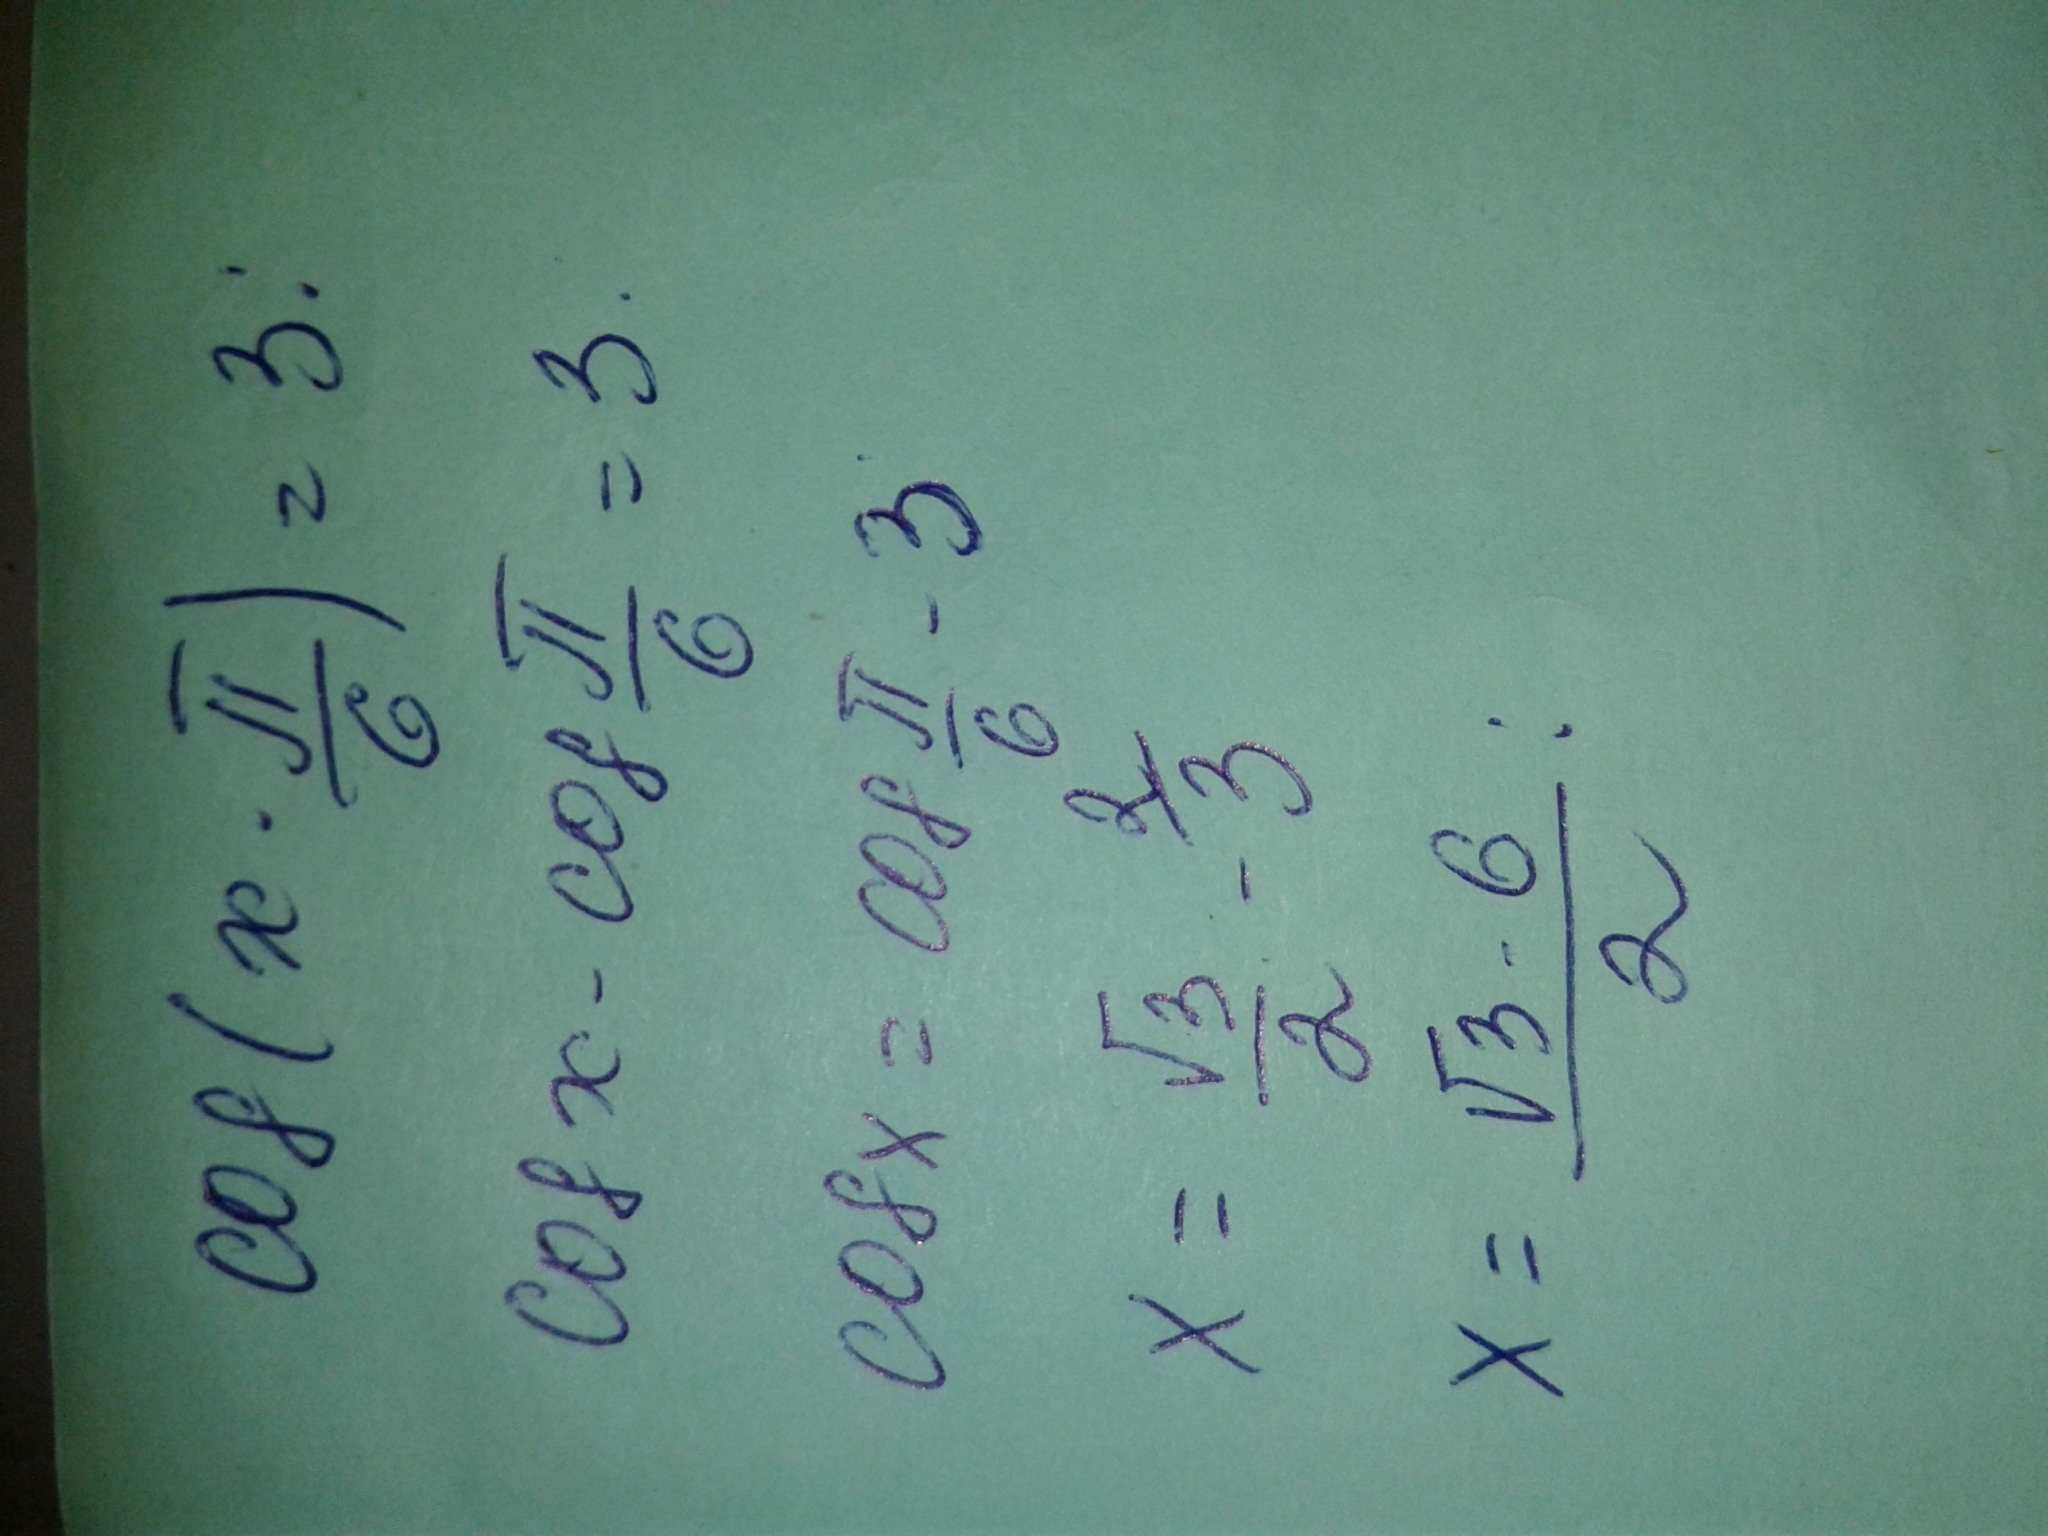 cos(x · π/6) = 3:
cos x - cos π/6 = 3.
cos x = cos π/6 - 3
x = √3/2 - 3 \2
x = (√3 - 6)/2 :